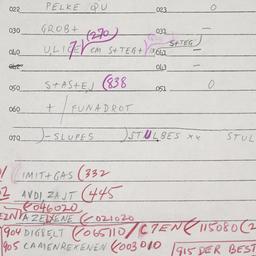 022 PELKE QU 023 O
030 GROB+ (270) 033 —
040 ULICE 7 cm S+TEG+ S+TEG) 043
050 S+AS+EJ (838 053 O
060 + / FUNADROT
070 )-SLUPES )STULBES xx STUL
IMIT+GAS (332
AUDIZAJT (445
(046020
AZEDXENE (021020
904 DIGBELT (065110/C7EN(115080(2
905 CAAENREXENEN (003010 915 DER BEST